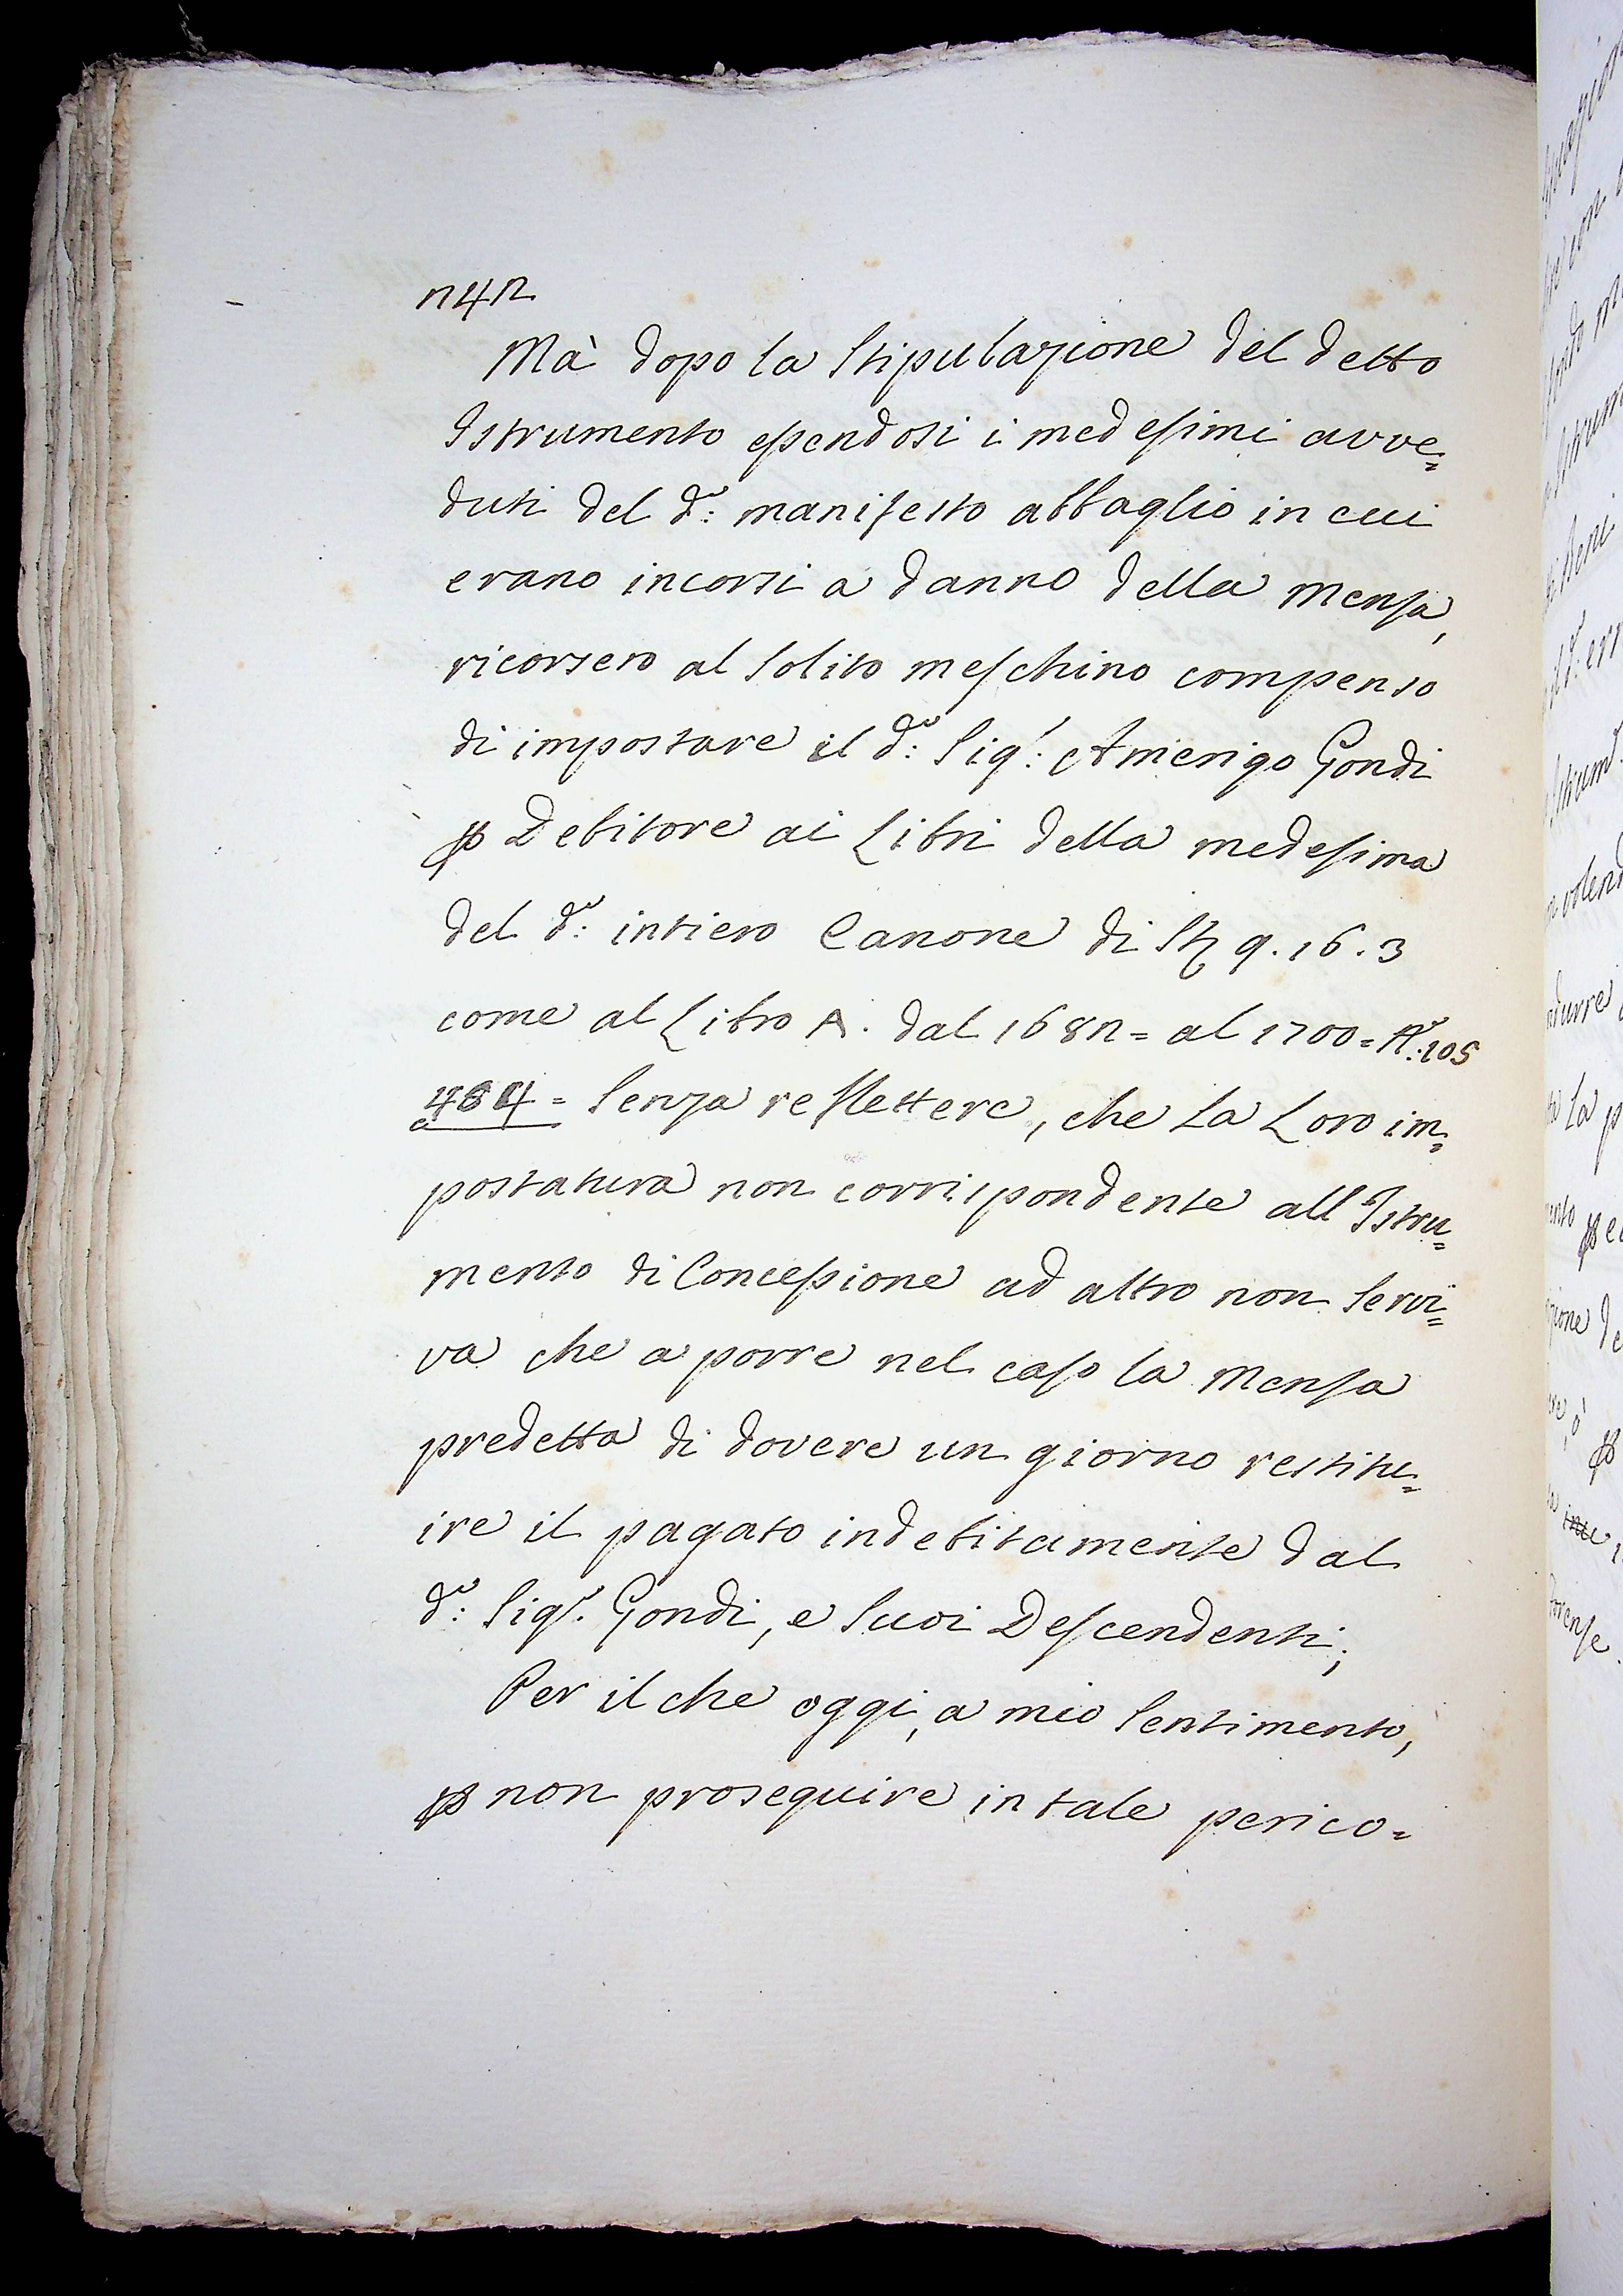 242
Mà dopo la Stipulazione del detto
Istrumento essendosi i medesimi avve=
duti del d.º: manifesto abbaglio in cui
erano incorsi a danno della Mensa,
ricorsero al solito meschino compenso
di impostare il d.º: Sig.r: Amerigo Gondi
ꝑ Debitore ai Libri della medesima
del d.º: intiero Canone di 9.16.3
come al Libro A. dal 1682= al 1700= 105
484= Senza reflettere, che La Loro im=
postatura non corrispondente all'Istru=
mento di Concessione ad altro non servi=
va che a porre nel caso la Mensa
predetta di dovere un giorno restitu=
ire il pagato indebitamente dal
d.º: Sig.r. Gondi, e suoi Descendenti;
Per il che oggi, a mio sentimento,
ꝑ non proseguire in tale perico=